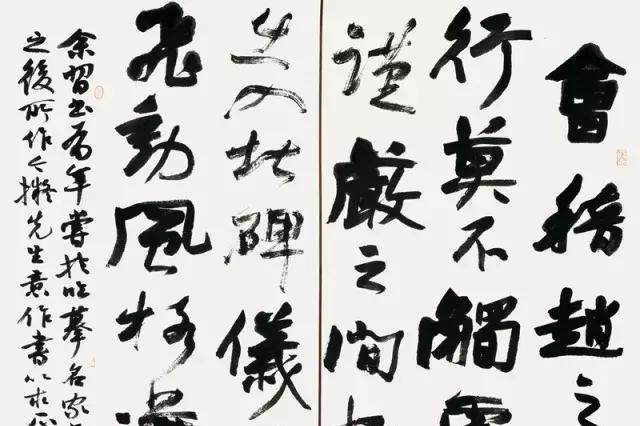 會稽趙之
行莫不觸
謹嚴之間
入北碑儀
飛動風格
余習書多年嘗於臨摹名家
之後所作今擬先生意作書以求